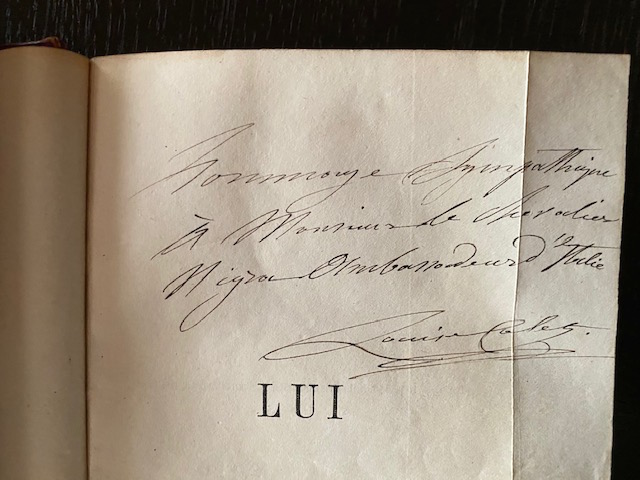 Hommage Sympathique
à Monsieur le Chevalier
Nigra Ambassadeur d'Italie
Louise Colet.
LUI